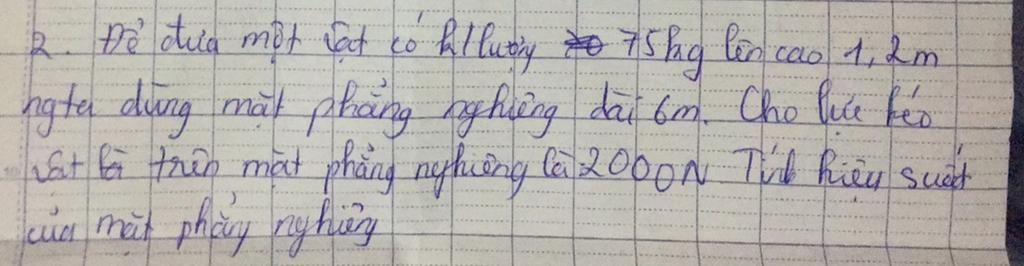 2. Để đưa một vật có k/lượng 75kg lên cao 1,2m
ngta dùng mặt phẳng nghiêng dài 6m. Cho lực kéo
vật là trên mặt phẳng nghiêng là 2000N Tính hiệu suất
của mặt phẳng nghiêng